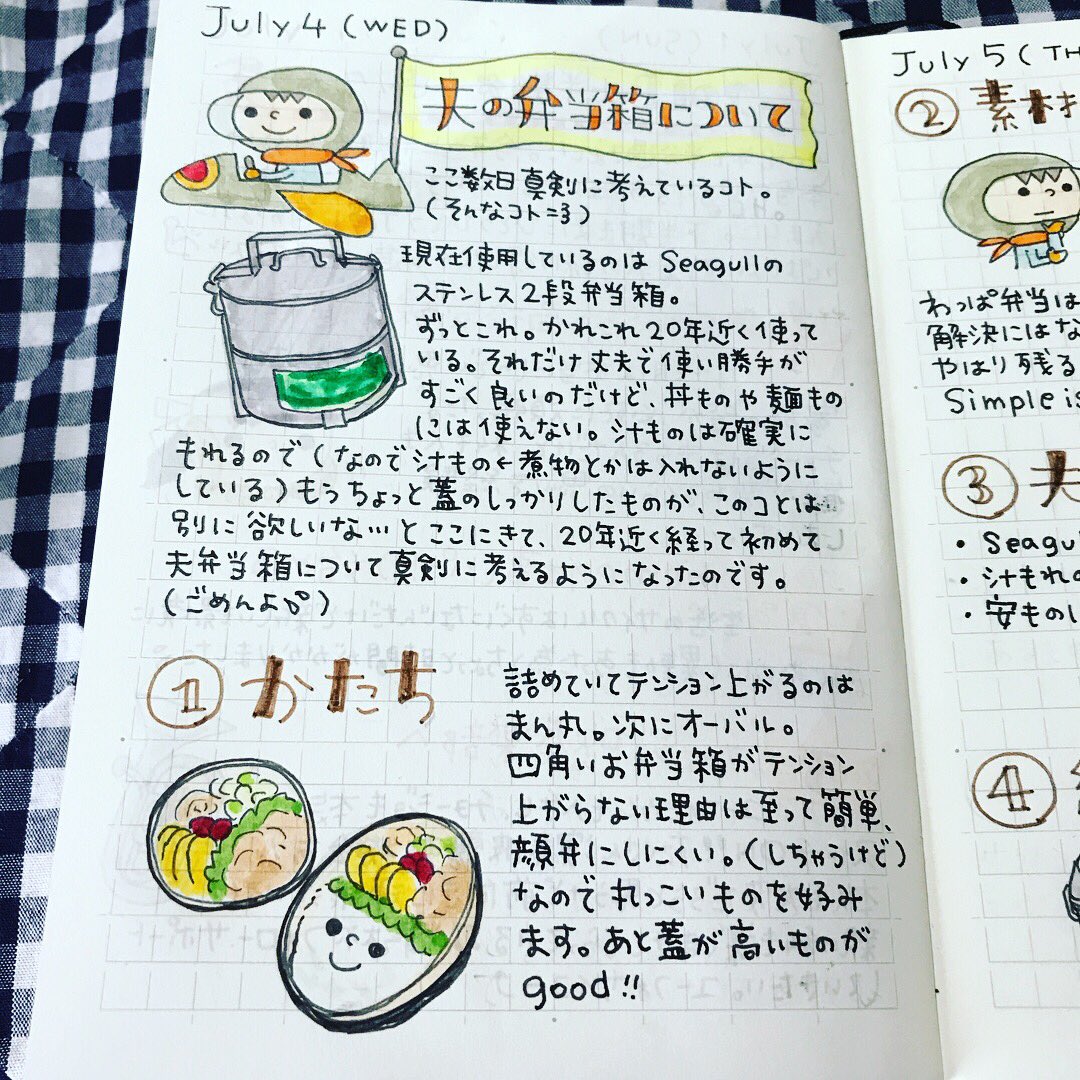 July 4 (WED)
夫の弁当箱について
ここ数日真剣に考えているコト。
(そんなコト=3)
現在使用しているのは Seagullの
ステンレス2段弁当箱。
ずっとこれ。かれこれ20年近く使って
いる。それだけ丈夫で使い勝手が
すごく良いのだけど、丼ものや麺もの
には使えない。汁ものは確実に
もれるので(なので汁もの←煮物とかは入れないように
している)もうちょっと蓋のしっかりしたものが、このコとは
別に欲しいな…とここにきて、20年近く経って初めて
夫弁当箱について真剣に考えるようになったのです。
(ごめんよ)
① かたち
詰めていてテンション上がるのは
まん丸。次にオーバル。
四角いお弁当箱がテンション
上がらない理由は至って簡単、
顔弁にしにくい。(しちゃうけど)
なので丸っこいものを好み
ます。あと蓋が高いものが
good!!
July 5 (TH
② 素材
わっぱ弁当は
解決にはな
やはり残る
Simple is
③ 夫
・Seagul
・汁もれの
・安もの
④